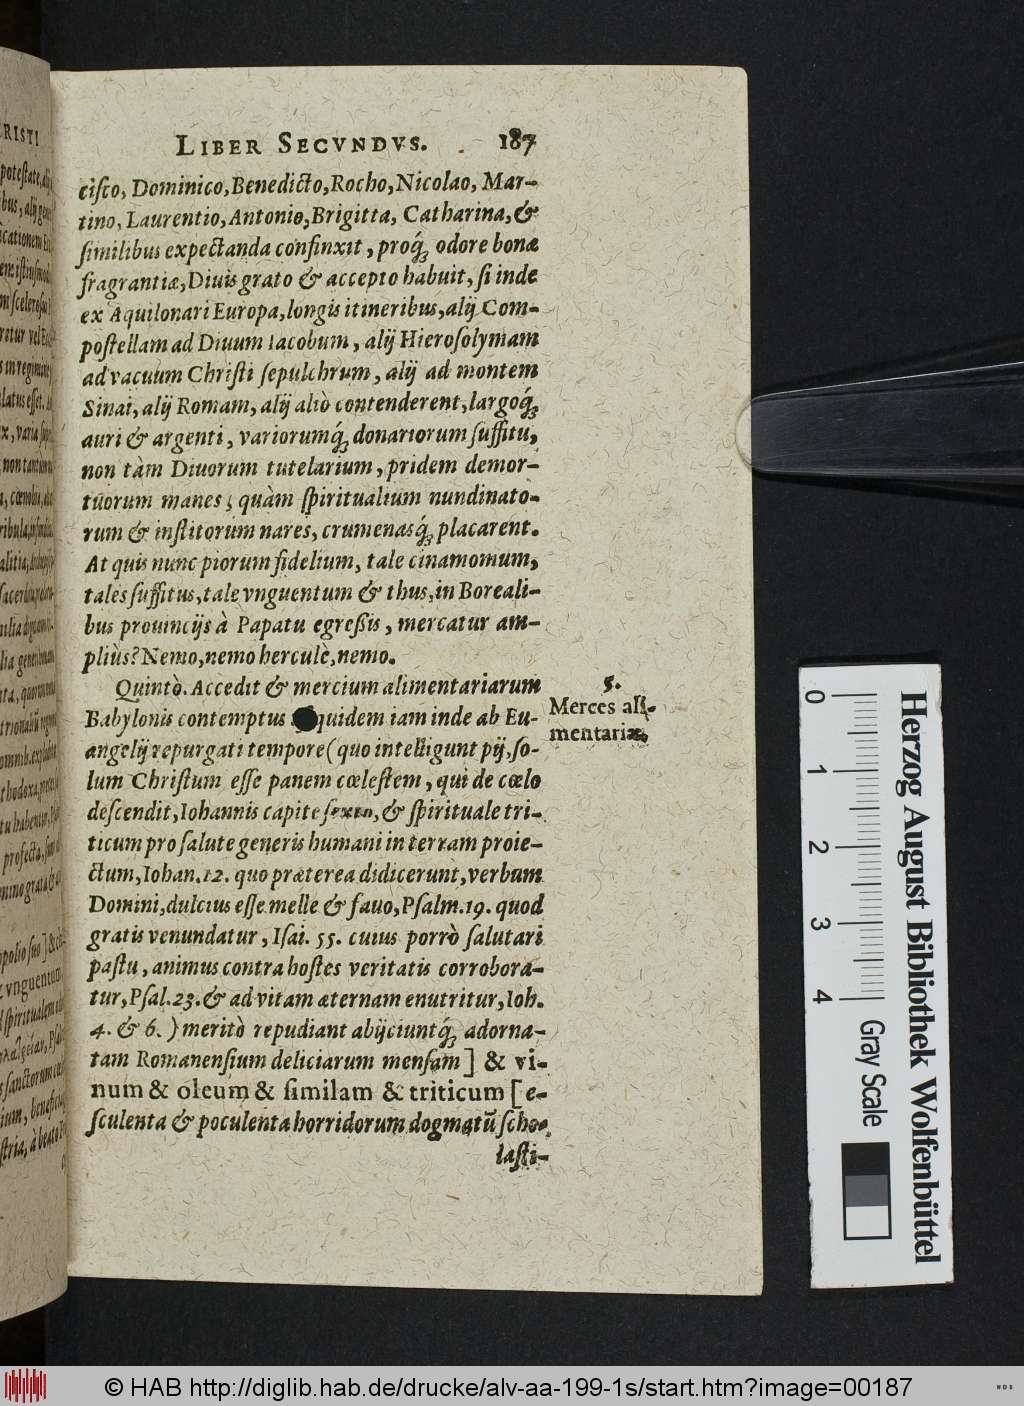 LIBER SECVNDVS. 187
ciſco, Dominico, Benedicto, Rocho, Nicolao, Mar-
tino, Laurentio, Antonio, Brigitta, Catharina, &
ſimilibus expectanda confinxit, proq́ꝫ odore bonæ
fragrantiæ, Diuis grato & accepto habuit, ſi inde
ex Aquilonari Europa, longis itineribus, alij Com-
poſtellam ad Diuum Iacobum, alij Hieroſolymam
ad vacuum Chriſti ſepulchrum, alij ad montem
Sinai, alij Romam, alij aliò contenderent, largoq́ꝫ
auri & argenti, variorumq́ꝫ donariorum ſuffitu,
non tàm Diuorum tutelarium, pridem demor-
tuorum manes, quàm ſpiritualium nundinato-
rum & inſtitorum nares, crumenasq́ꝫ placarent.
At quis nunc piorum fidelium, tale cinamomum,
tales ſuffitus, tale vnguentum & thus, in Boreali-
bus prouincijs à Papatu egreßis, mercatur am-
pliùs? Nemo, nemo herculè, nemo.
Quintò. Accedit & mercium alimentariarum
Babylonis contemptus quidem iam inde ab Eu-
angelij repurgati tempore (quo intelligunt pij, ſo-
lum Chriſtum eſſe panem cœleſtem, qui de cœlo
deſcendit, Iohannis capite ſexto, & ſpirituale tri-
ticum pro ſalute generis humani in terram proie-
ctum, Iohan. 12. quo præterea didicerunt, verbum
Domini, dulcius eſſe melle & fauo, Pſalm. 19. quod
gratis venundatur, Iſai. 55. cuius porrò ſalutari
paſtu, animus contra hoſtes veritatis corrobora-
tur, Pſal. 23. & ad vitam æternam enutritur, Ioh.
4. & 6.) meritò repudiant abijciuntq́ꝫ adorna-
tam Romanenſium deliciarum menſam] & vi-
num & oleum & ſimilam & triticum [e-
ſculenta & poculenta horridorum dogmatū ſcho-
laſti-
5.
Merces ali-
mentariæ.
0 1 2 3 4
Gray Scale
Herzog August Bibliothek Wolfenbüttel
© HAB http://diglib.hab.de/drucke/alv-aa-199-1s/start.htm?image=00187